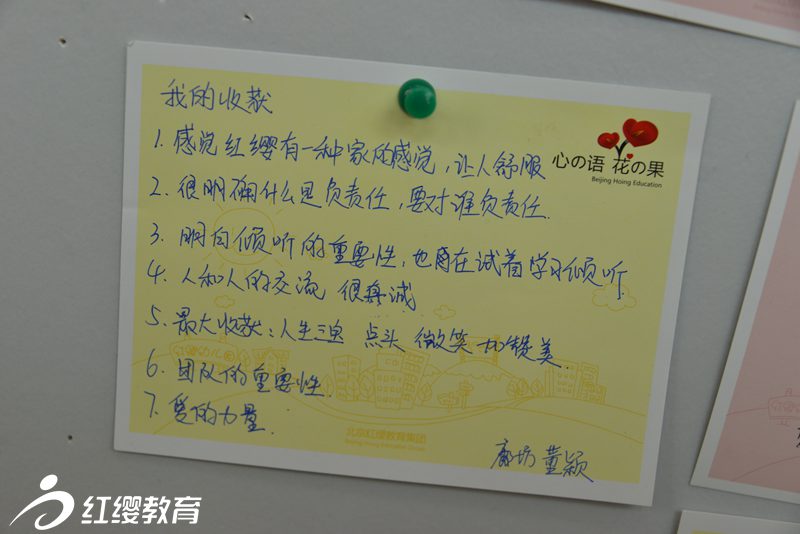 我的收获
1. 感觉红缨有一种家的感觉，让人舒服
2. 很明确什么是负责任，要对谁负责任.
3. 明白倾听的重要性，也在试着学习倾听
4. 人和人的交流 很真诚
5. 最大收获：人生三宝 点头 微笑 加赞美.
6. 团队的重要性.
7. 爱的力量.
廊坊 董颖
心の语 花の果
Beijing Hoing Education
北京红缨教育集团
Beijing Hoing Education Group
红缨教育